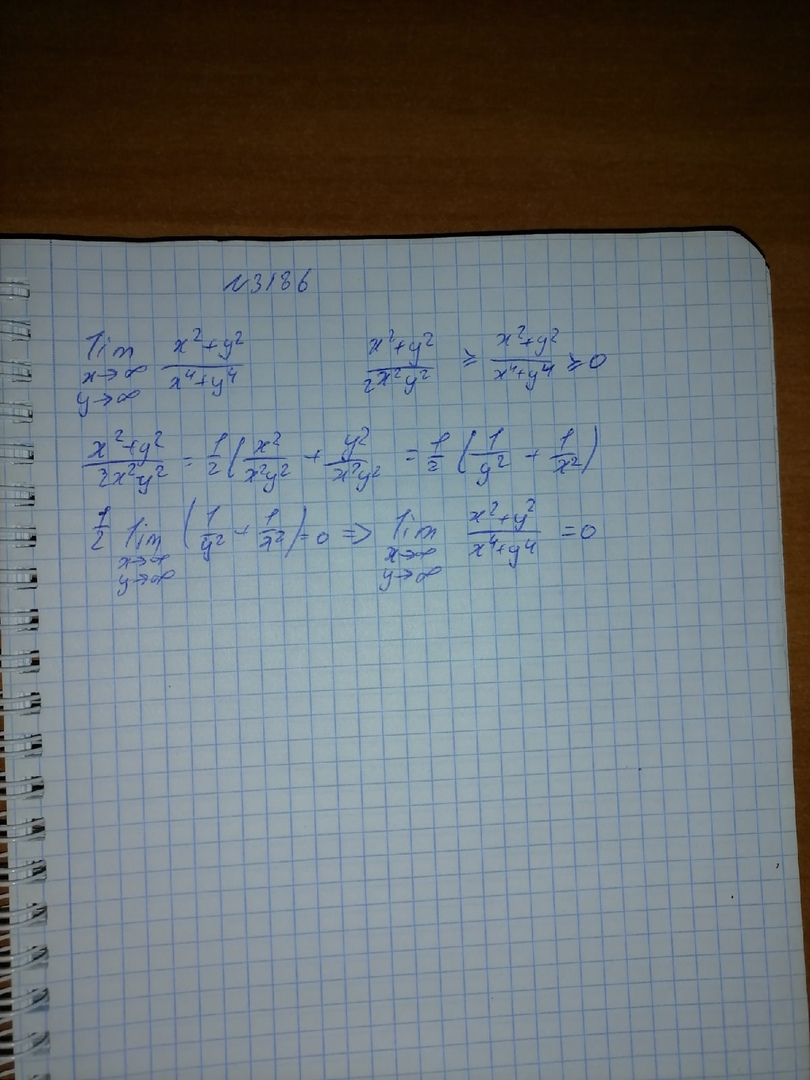 №3186
lim x→∞ y→∞ (x²+y²)/(x⁴+y⁴)    (x²+y²)/(2x²y²) ≥ (x²+y²)/(x⁴+y⁴) ≥ 0
(x²+y²)/(2x²y²) = 1/2 (x²/(x²y²) + y²/(x²y²) = 1/2 (1/y² + 1/x²)
1/2 lim x→∞ y→∞ (1/y² + 1/x²) = 0 => lim x→∞ y→∞ (x²+y²)/(x⁴+y⁴) = 0